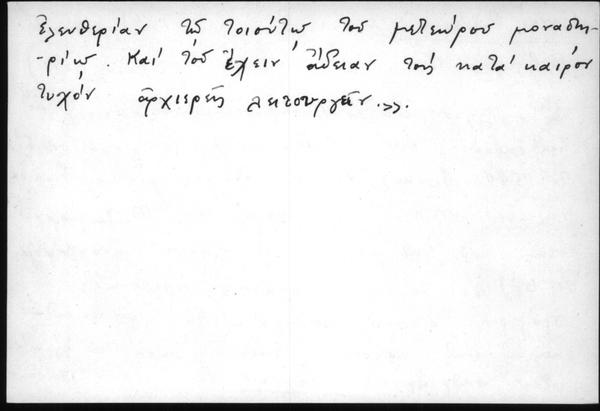 ἐλευθερίαν τῷ τοιούτῳ τοῦ μετεώρου μοναστη-
-ρίῳ. Καὶ τοῦ ἔχειν ἄδειαν τοὺς κατὰ καιρὸν
τυχὸν ἀρχιερεῖς λειτουργεῖν.»».